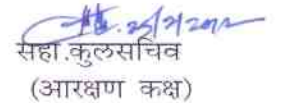 सहा.कुलसचिव
(आरक्षण कक्ष)